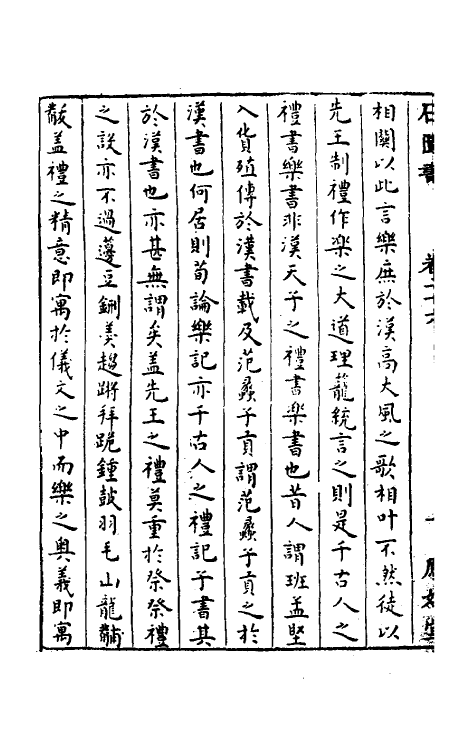 石匱書　卷二十六
相關以此言樂庶於漢高大風之歌相叶不然徒以
先王制禮作楽之大道理籠統言之則是千古人之
禮書樂書非漢天子之禮書楽書也昔人謂班孟堅
入貨殖傳於漢書載及范蠡子貢謂范蠡子貢之於
漢書也何居則荀論樂記亦千古人之禮記子書其
於漢書也亦甚無謂矣盖先王之禮莫重於祭祭禮
之設亦不過籩豆鉶羮趨蹌拜跪鍾皷羽毛山龍黼
黻盖禮之精意即寓於儀文之中而樂之奥義即寓